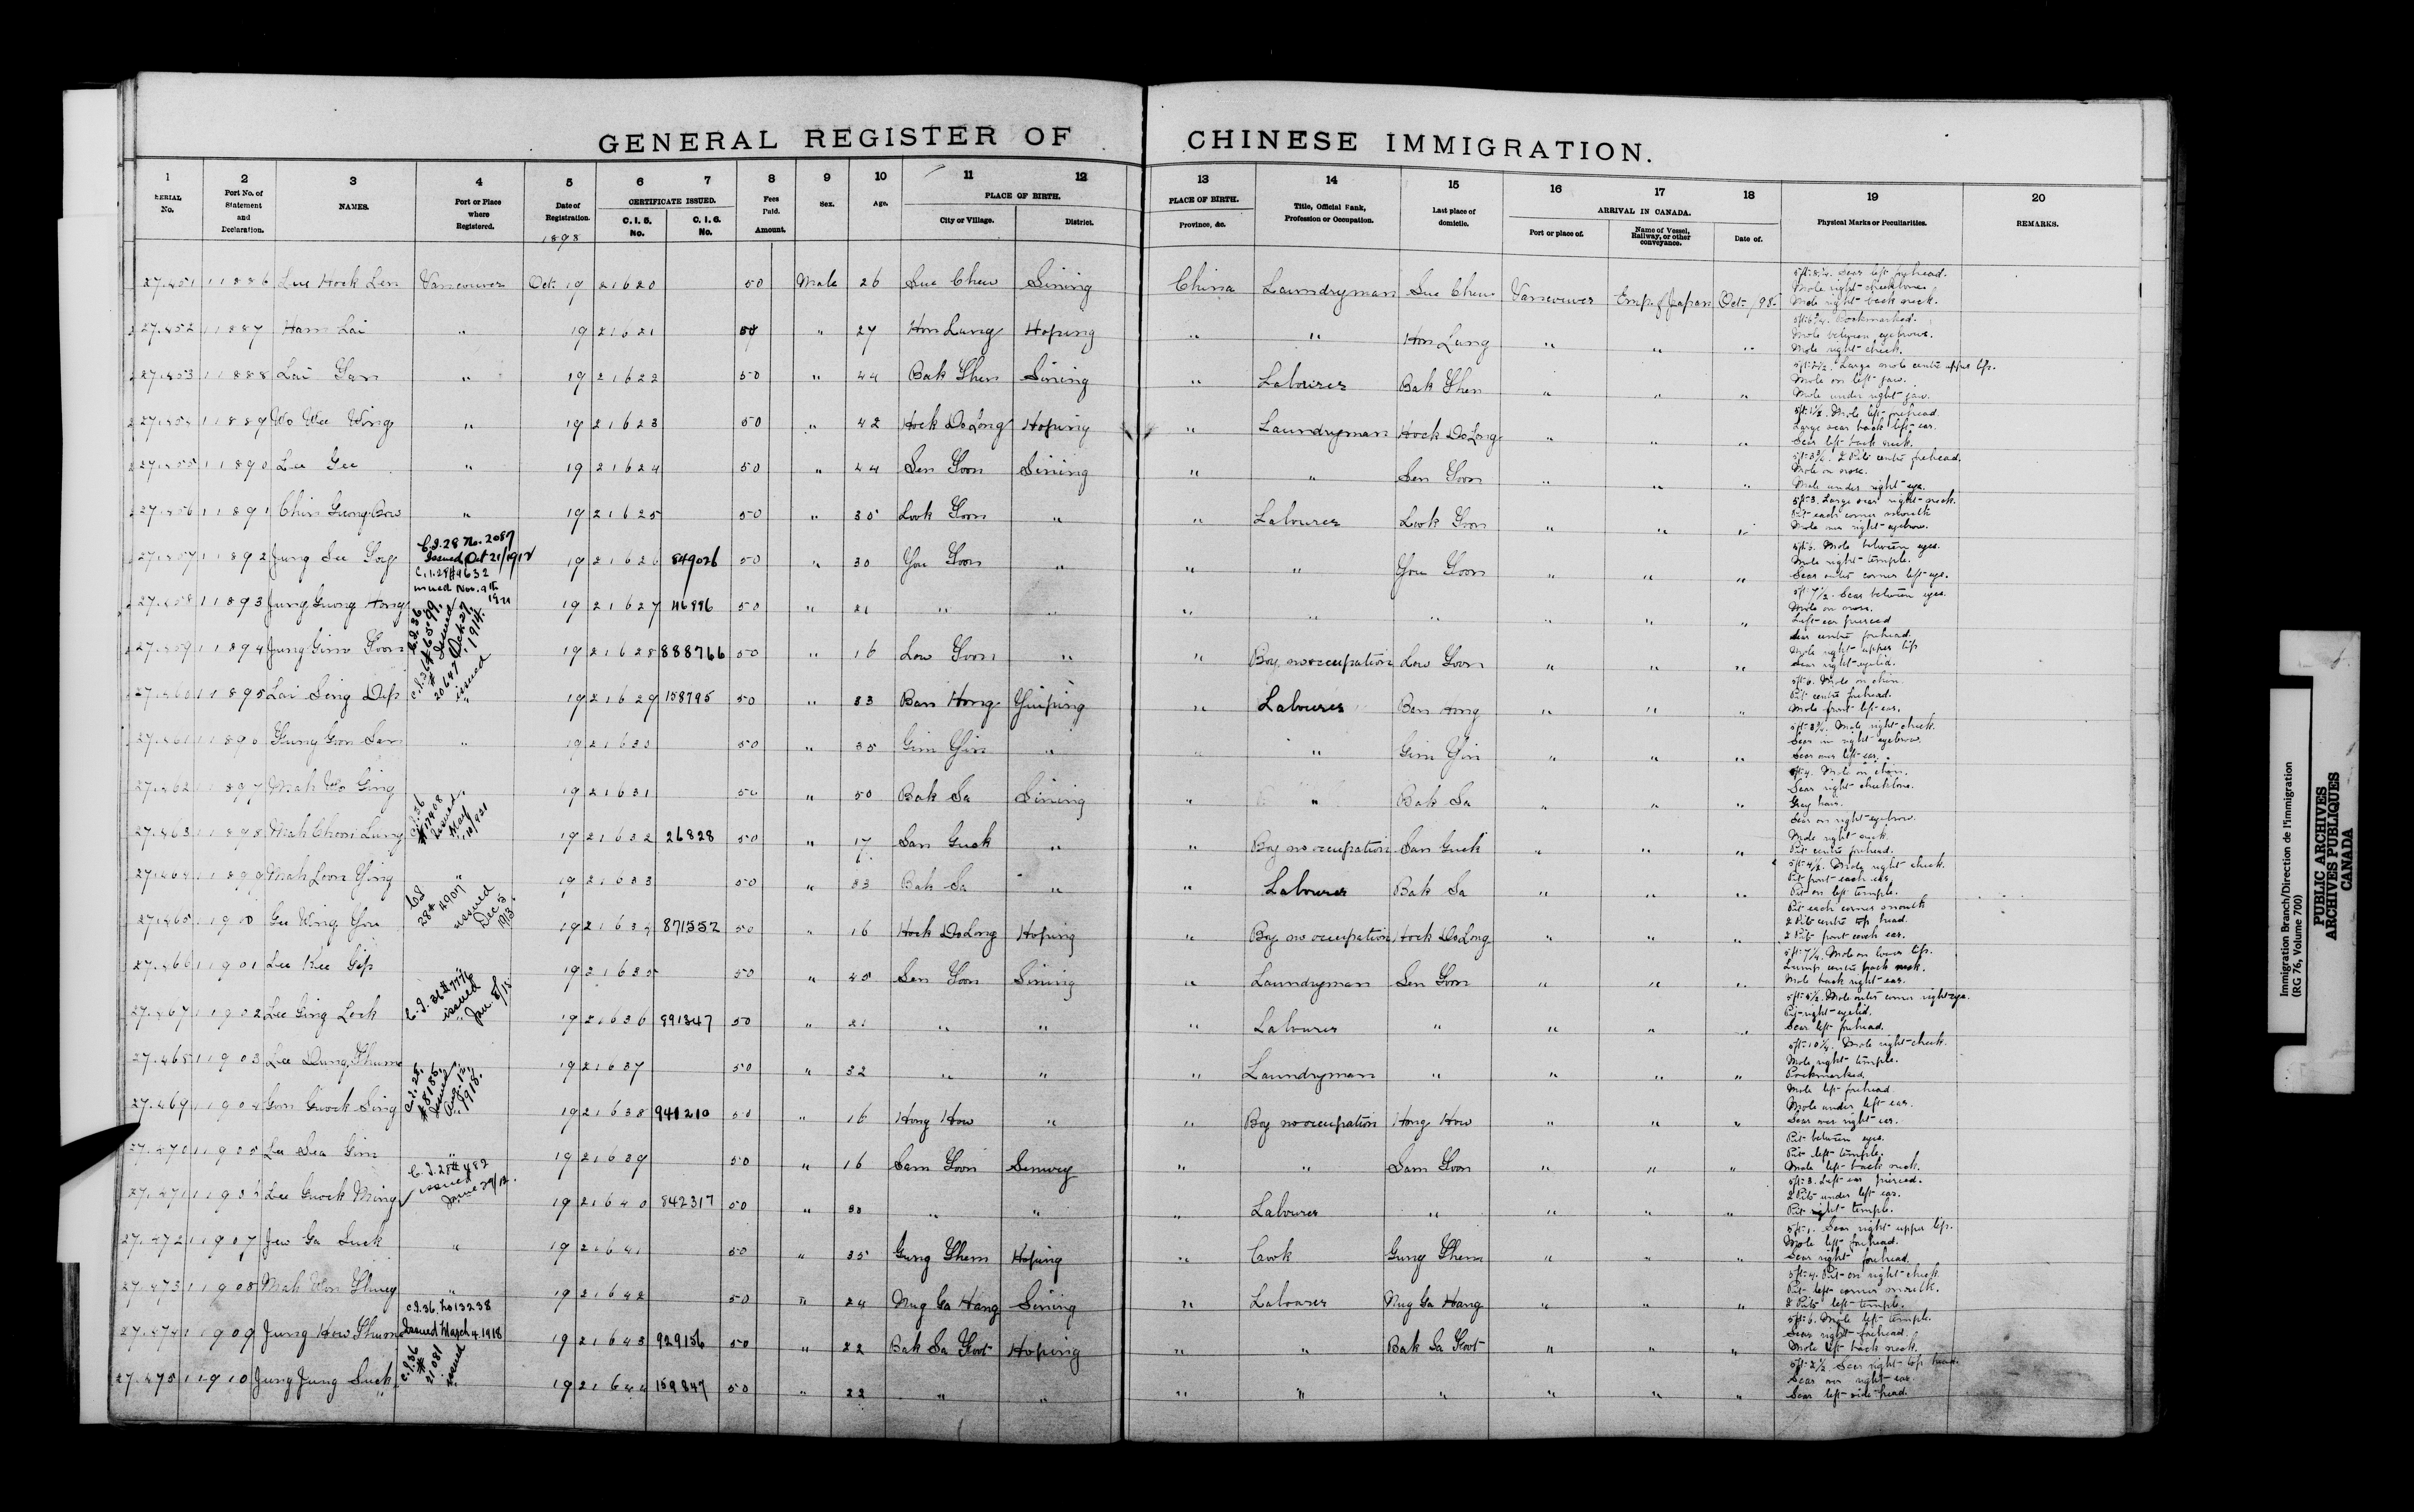 GENERAL REGISTER OF CHINESE IMMIGRATION.
1 2 3 4 5 6 7 8 9 10 11 12 13 14 15 16 17 18 19 20
SERIAL No. Port No. of Statement and Declaration. NAMES. Port or Place where Registered. Date of Registration. CERTIFICATE ISSUED. C. I. 5. No. C. I. 6. No. Fees Paid. Amount. Sex. Age. PLACE OF BIRTH. City or Village. District. PLACE OF BIRTH. Province, &c. Title, Official Rank, Profession or Occupation. Last place of domicile. ARRIVAL IN CANADA. Port or place of. Name of Vessel, Railway, or other conveyance. Date of. Physical Marks or Peculiarities. REMARKS.
1898
27.451 11886 Lue Hock Len Vancouver Oct. 19 21620 50 Male 26 Sue Chew Sining China Laundryman Sue Chew Vancouver Emp. of Japan Oct. /98. Scar left forehead. Mole right cheekbone. Mole right back neck.
27.452 11887 Ham Lai " 19 21621 50 " 27 Hon Lung Hoping " " Hon Lung " " " Pockmarked. Mole between eyebrows. Mole right cheek.
27.453 11888 Lai Gan " 19 21622 50 " 44 Bak Shen Sining " Labourer Bak Shen " " " Large mole centre upper lip. Mole on left jaw. Mole under right jaw.
27.454 11889 Wo Wee Wing " 19 21623 50 " 42 Hock Do Long Hoping " Laundryman Hock Do Long " " " 5ft-1½. Mole left forehead. Large scar back left ear. Scar left back neck.
27.455 11890 Lee Gee " 19 21624 50 " 44 Sen Goon Sining " " Sen Goon " " " 2 Pits centre forehead. Mole on nose. Mole under right eye.
27.456 11891 Chin Gung Bow " 19 21625 50 " 35 Look Goon " " Labourer Look Goon " " " 5ft-3. Large scar right neck. Pit each corner mouth Mole over right eyebrow.
C.I.28 No. 2087 Issued Oct 21/1912
27.457 11892 Jung See Goey 19 21626 849026 50 " 30 You Goon " " " You Goon " " " Mole between eyes. Mole right temple. Scar outer corner left eye.
C.I.28#4632 issued Nov. 9th
27.458 11893 Jung Guong Hong 19 21627 50 " 21 " " " " " " " " 5ft-7½. Scar between eyes. Mole on nose. Left ear pierced
C.I.36 #6599 Issued Oct 27, 1914.
27.459 11894 Jung Gim Goon 19 21628 888766 50 " 16 Low Goon " " Boy, no occupation Low Goon " " " Scar centre forehead. Mole right upper lip Scar right eyelid.
C.I.36 # 20647 issued
27.460 11895 Lai Sing Dep " 19 21629 158795 50 " 33 Ban Hong Yinping " Labourer Ban Hong " " " 5ft-6. Mole on chin. Pit centre forehead. Mole front left ear.
27.461 11896 Gung Gon Sen " 19 21630 50 " 35 Gim Yin " " " Gim Yin " " " Mole right cheek. Scar in right eyebrow. Scar over left ear.
27.462 11897 Mah Wo Ging 19 21631 50 " 50 Bak Sa Sining " " Bak Sa " " " 5ft-4. Mole on chin. Scar right cheekbone. Gray hair.
C.I.36 #17408 Issued May
27.463 11898 Mah Choni Lung 19 21632 26828 50 " 17 San Guck " " Boy no occupation San Guck " " " Scar on right eyebrow. Mole right neck. Pit centre forehead.
27.464 11899 Mah Leon Ying " 19 21633 50 " 33 Bak Sa " " Labourer Bak Sa " " " 5ft-4½. Mole right cheek. Pit front each ear. Pit on left temple.
28# 4907 issued Dec 5 1913.
27.465 11900 Gee Wing You 19 21634 871552 50 " 16 Hock Do Long Hoping " Boy no occupation Hock Do Long " " " Pit each corner mouth 2 Pits centre top head. 2 Pits front each ear.
27.466 11901 Lee Kee Gip " 19 21635 50 " 45 Sen Goon Sining " Laundryman Sen Goon " " " 5ft-7¼. Mole on lower lip. Lump centre back neck. Mole back right ear.
C.I.36#7776 issued Jan. 8/15
27.467 11902 Lee Ging Lock " 19 21636 891347 50 " 21 " " " Labourer " " " " Mole outer corner right eye. Pit right eyelid. Scar left forehead.
27.468 11903 Lee Dung Thume " 19 21637 50 " 32 " " " Laundryman " " " " 5ft-10¼. Mole right cheek. Mole right temple. Pockmarked
C.I.28. #8185. Issued Aug. 12, 1918.
27.469 11904 Gon Guock Sing 19 21638 941210 50 " 16 Hong How " " Boy no occupation Hong How " " " Mole left forehead Mole under left ear. Scar over right ear.
27.470 11905 Lee Dea Gim " 19 21639 50 " 16 Sam Goon Sunwey " " Sam Goon " " " Pit between eyes. Pit left temple. Mole left back neck.
C.I.28#482 issued June 29/12.
27.471 11906 Lee Guock Ming 19 21640 842317 50 " 30 " " " Labourer " " " " 5ft-3. Left ear pierced. 2 Pits under left ear. Pit right temple.
27.472 11907 Jew Ga Suck " 19 21641 50 " 35 Gung Shem Hoping " Cook Gung Shem " " " 5ft-1. Scar right upper lip. Mole left forehead. Scar right forehead.
27.473 11908 Mah Won Shuey " 19 21642 50 " 24 Nug Ga Hang Sining " Labourer Nug Ga Hang " " " 5ft-4. Pit on right cheek. Pit left corner mouth. 2 Pits left temple.
C.I.36. No 13238 Issued March 4. 1918
27.474 11909 Jung How Shuon 19 21643 929156 50 " 22 Bak Sa Goot Hoping " " Bak Sa Goot " " " 5ft-6. Mole left temple. Scar right forehead. Mole left back neck.
C.I.36 # 21081 issued
27.475 11910 Jung Jung Suck " 19 21644 159847 50 " 22 " " " " " " " " 5ft-2½. Scar right top head. Scar over right ear Scar left side head.
Immigration Branch/Direction de l'immigration
(RG 76, Volume 700)
PUBLIC ARCHIVES
ARCHIVES PUBLIQUES
CANADA